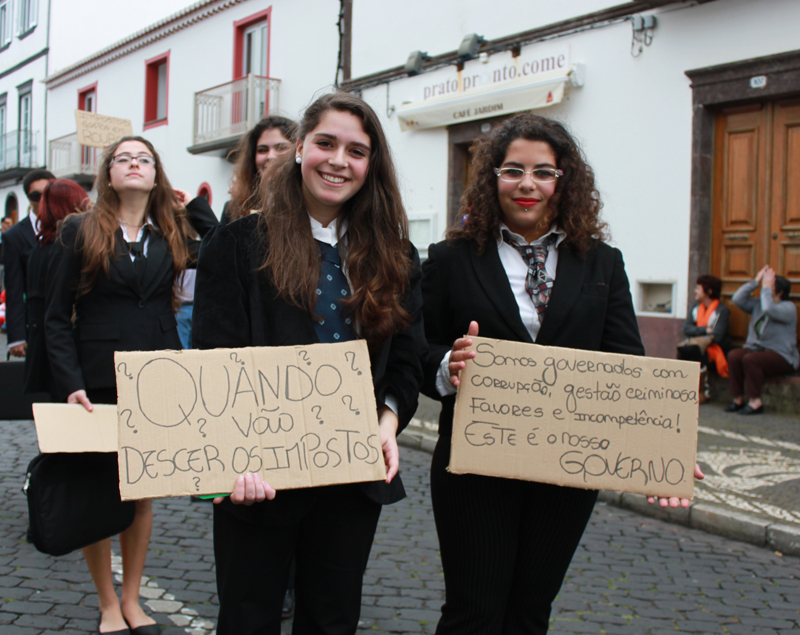 prato pronto.come
CAFÉ JARDIM
QUANDO
VÃO
DESCER OS IMPOSTOS
? ? ? ? ? ? ? ? ? ?
Somos governados com
corrupção, gestão criminosa
Favores e incompetência!
Este é o nosso
GOVERNO.